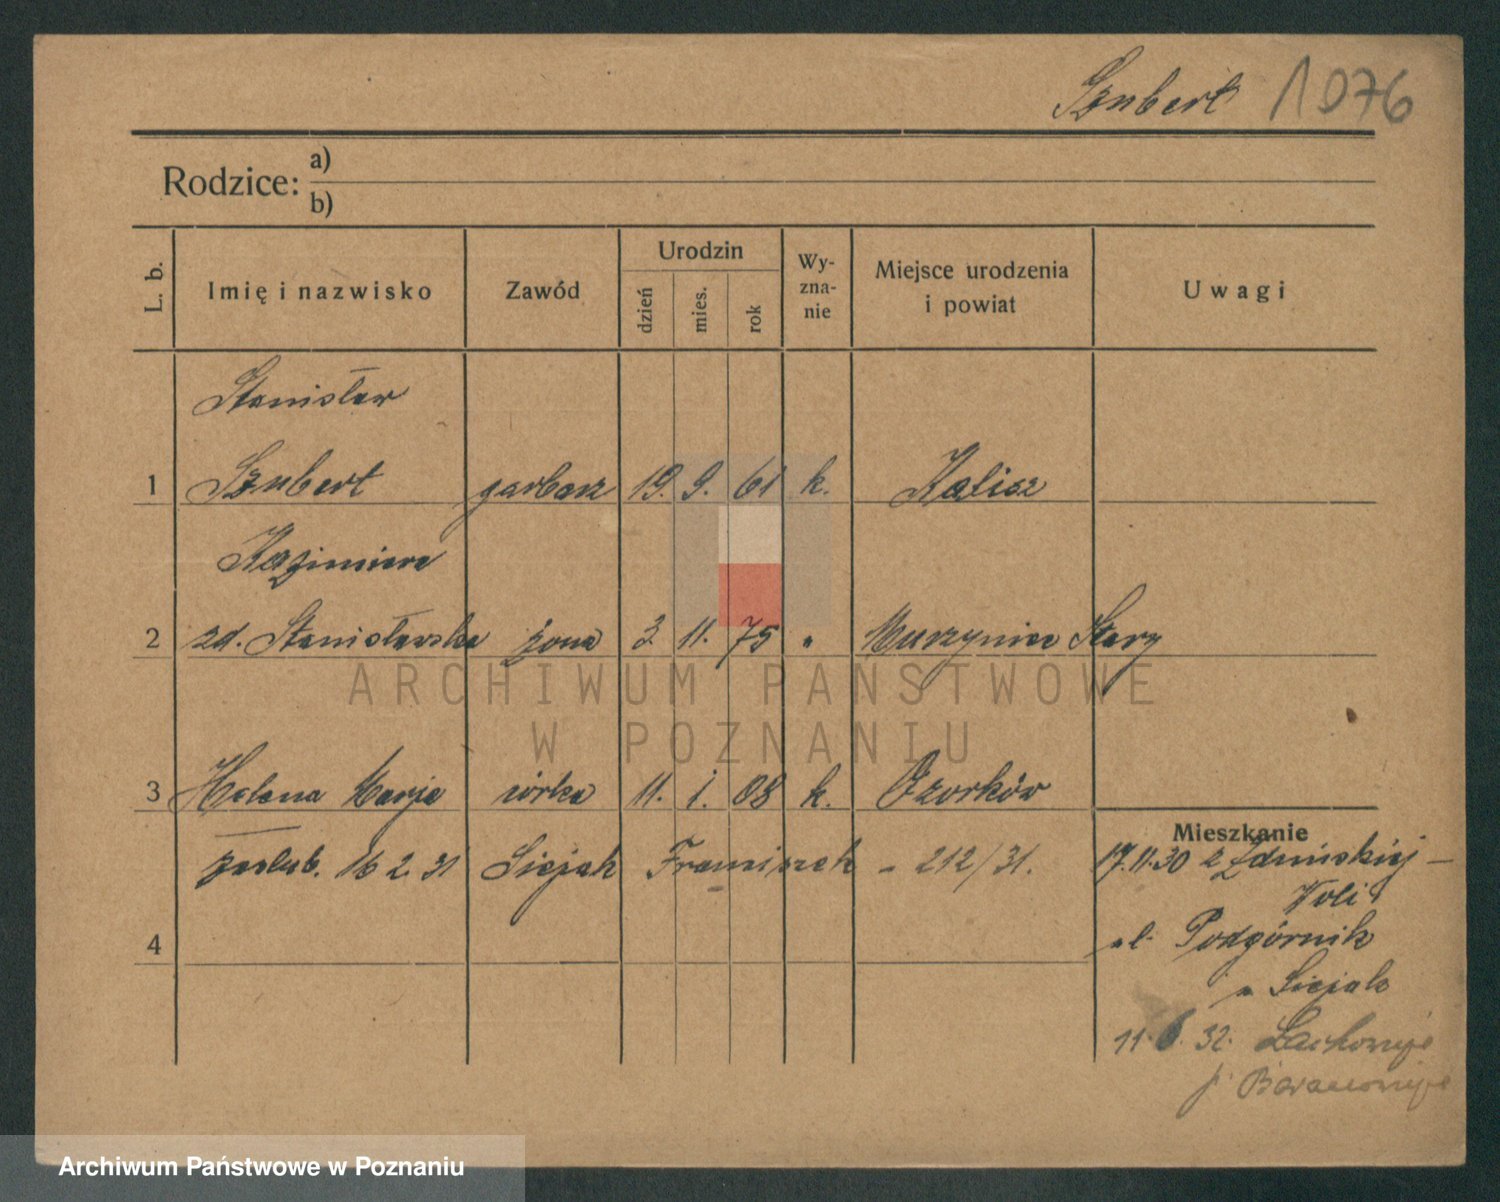 Szubert 1076
Rodzice: a)
b)
L. b. Imię i nazwisko Zawód Urodzin dzień mies. rok Wy-zna-nie Miejsce urodzenia i powiat Uwagi
Stanisław
1 Szubert garbarz 19. 9. 61 k. Kalisz
Kazimiera
2 zd. Stanisławska żona 3. 11. 75 " Murzyniec Stary
ARCHIWUM PAŃSTWOWE
W POZNANIU
3 Helena Marja córka 11. 1. 08 k. Ozorków
Mieszkanie
zaślub. 16 2. 31 Siejak Franciszek - 212/31. 17.11.30 z Zduńskiej -
Woli
4 Podgórnik
u Siejak
11. 6. 32.
Archiwum Państwowe w Poznaniu